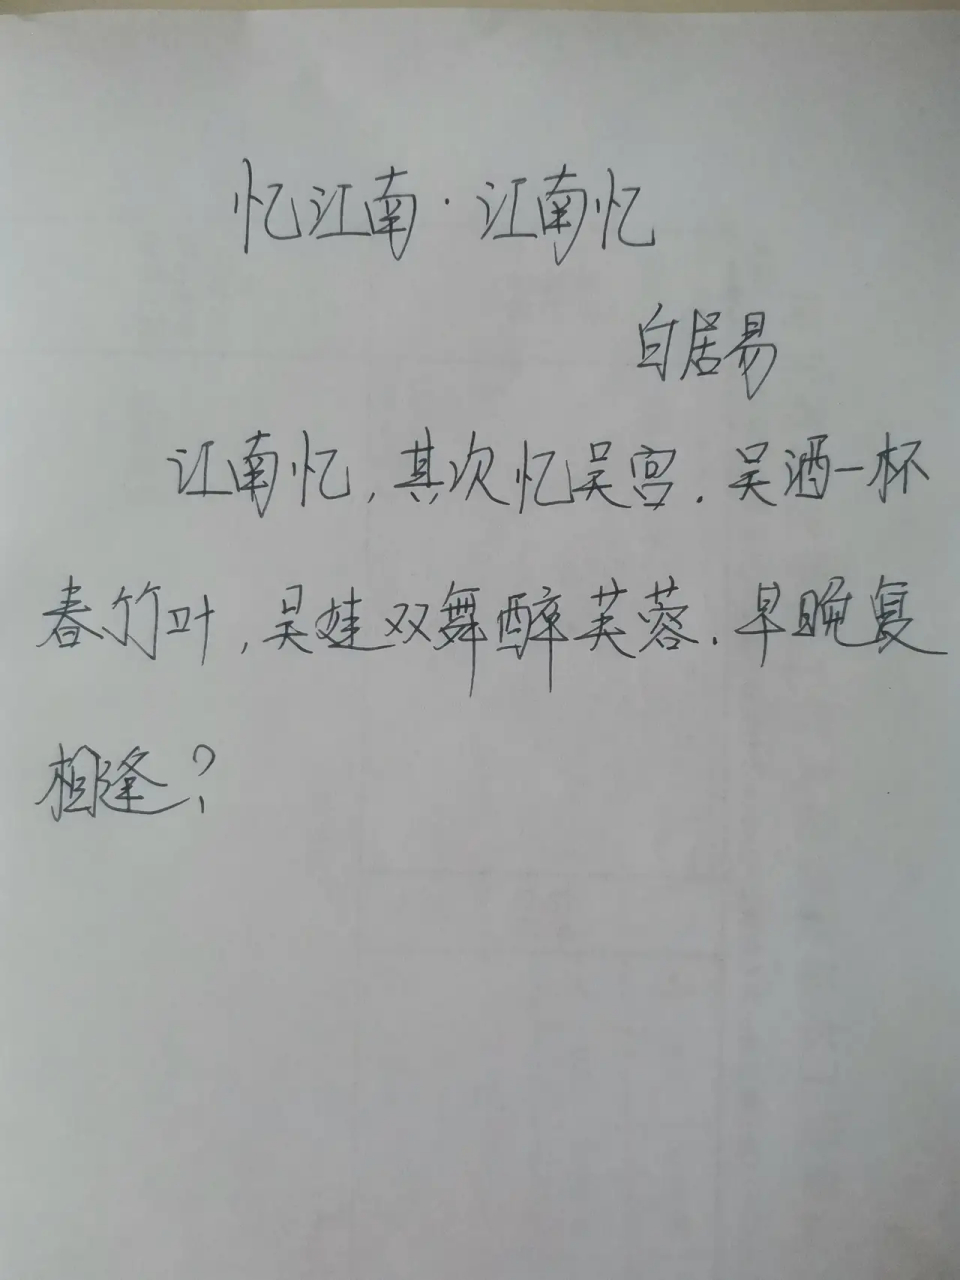 忆江南·江南忆
白居易
江南忆,其次忆吴宫.吴酒一杯
春竹叶,吴娃双舞醉芙蓉.早晚复
相逢?